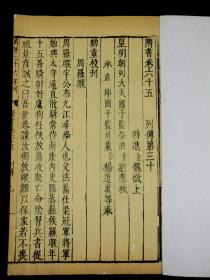 隋書卷六十五　列傳第三十
特進臣魏徵上
皇明朝列大夫國子監祭酒臣劉應秋
承直郎國子監司業臣楊道賓等奉
勑重校刊
周羅睺
周羅睺字公布九江尋陽人也父法暠仕梁冠軍將軍
始興太守通直散騎常侍南康內史臨蒸縣侯羅睺年
十五善騎射好鷹狗任俠放蕩收聚亡命陰習兵書從
祖景彥誡之曰吾世恭謹汝獨放縱難以保家若不喪